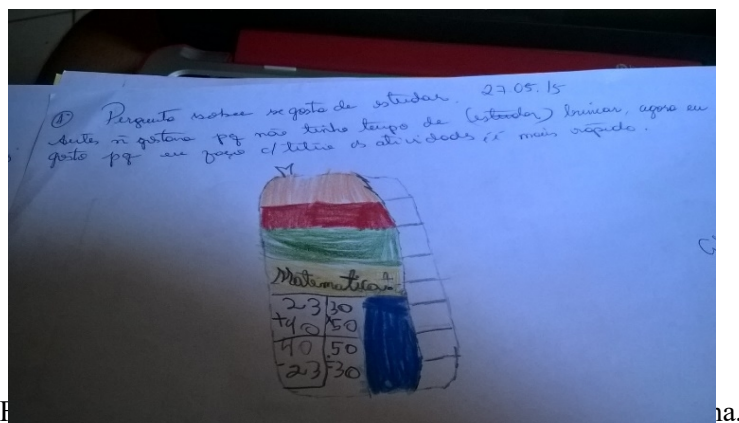 27.05.15
① Pergunto sobre se gosta de estudar.
Antes ñ gostava pq não tinha tempo de (estudar) brincar, agora eu
gosto pq eu faço c/ as atividades é mais rápido.
Matemática
23 30
+40 50
40 50
-23 -30
na.